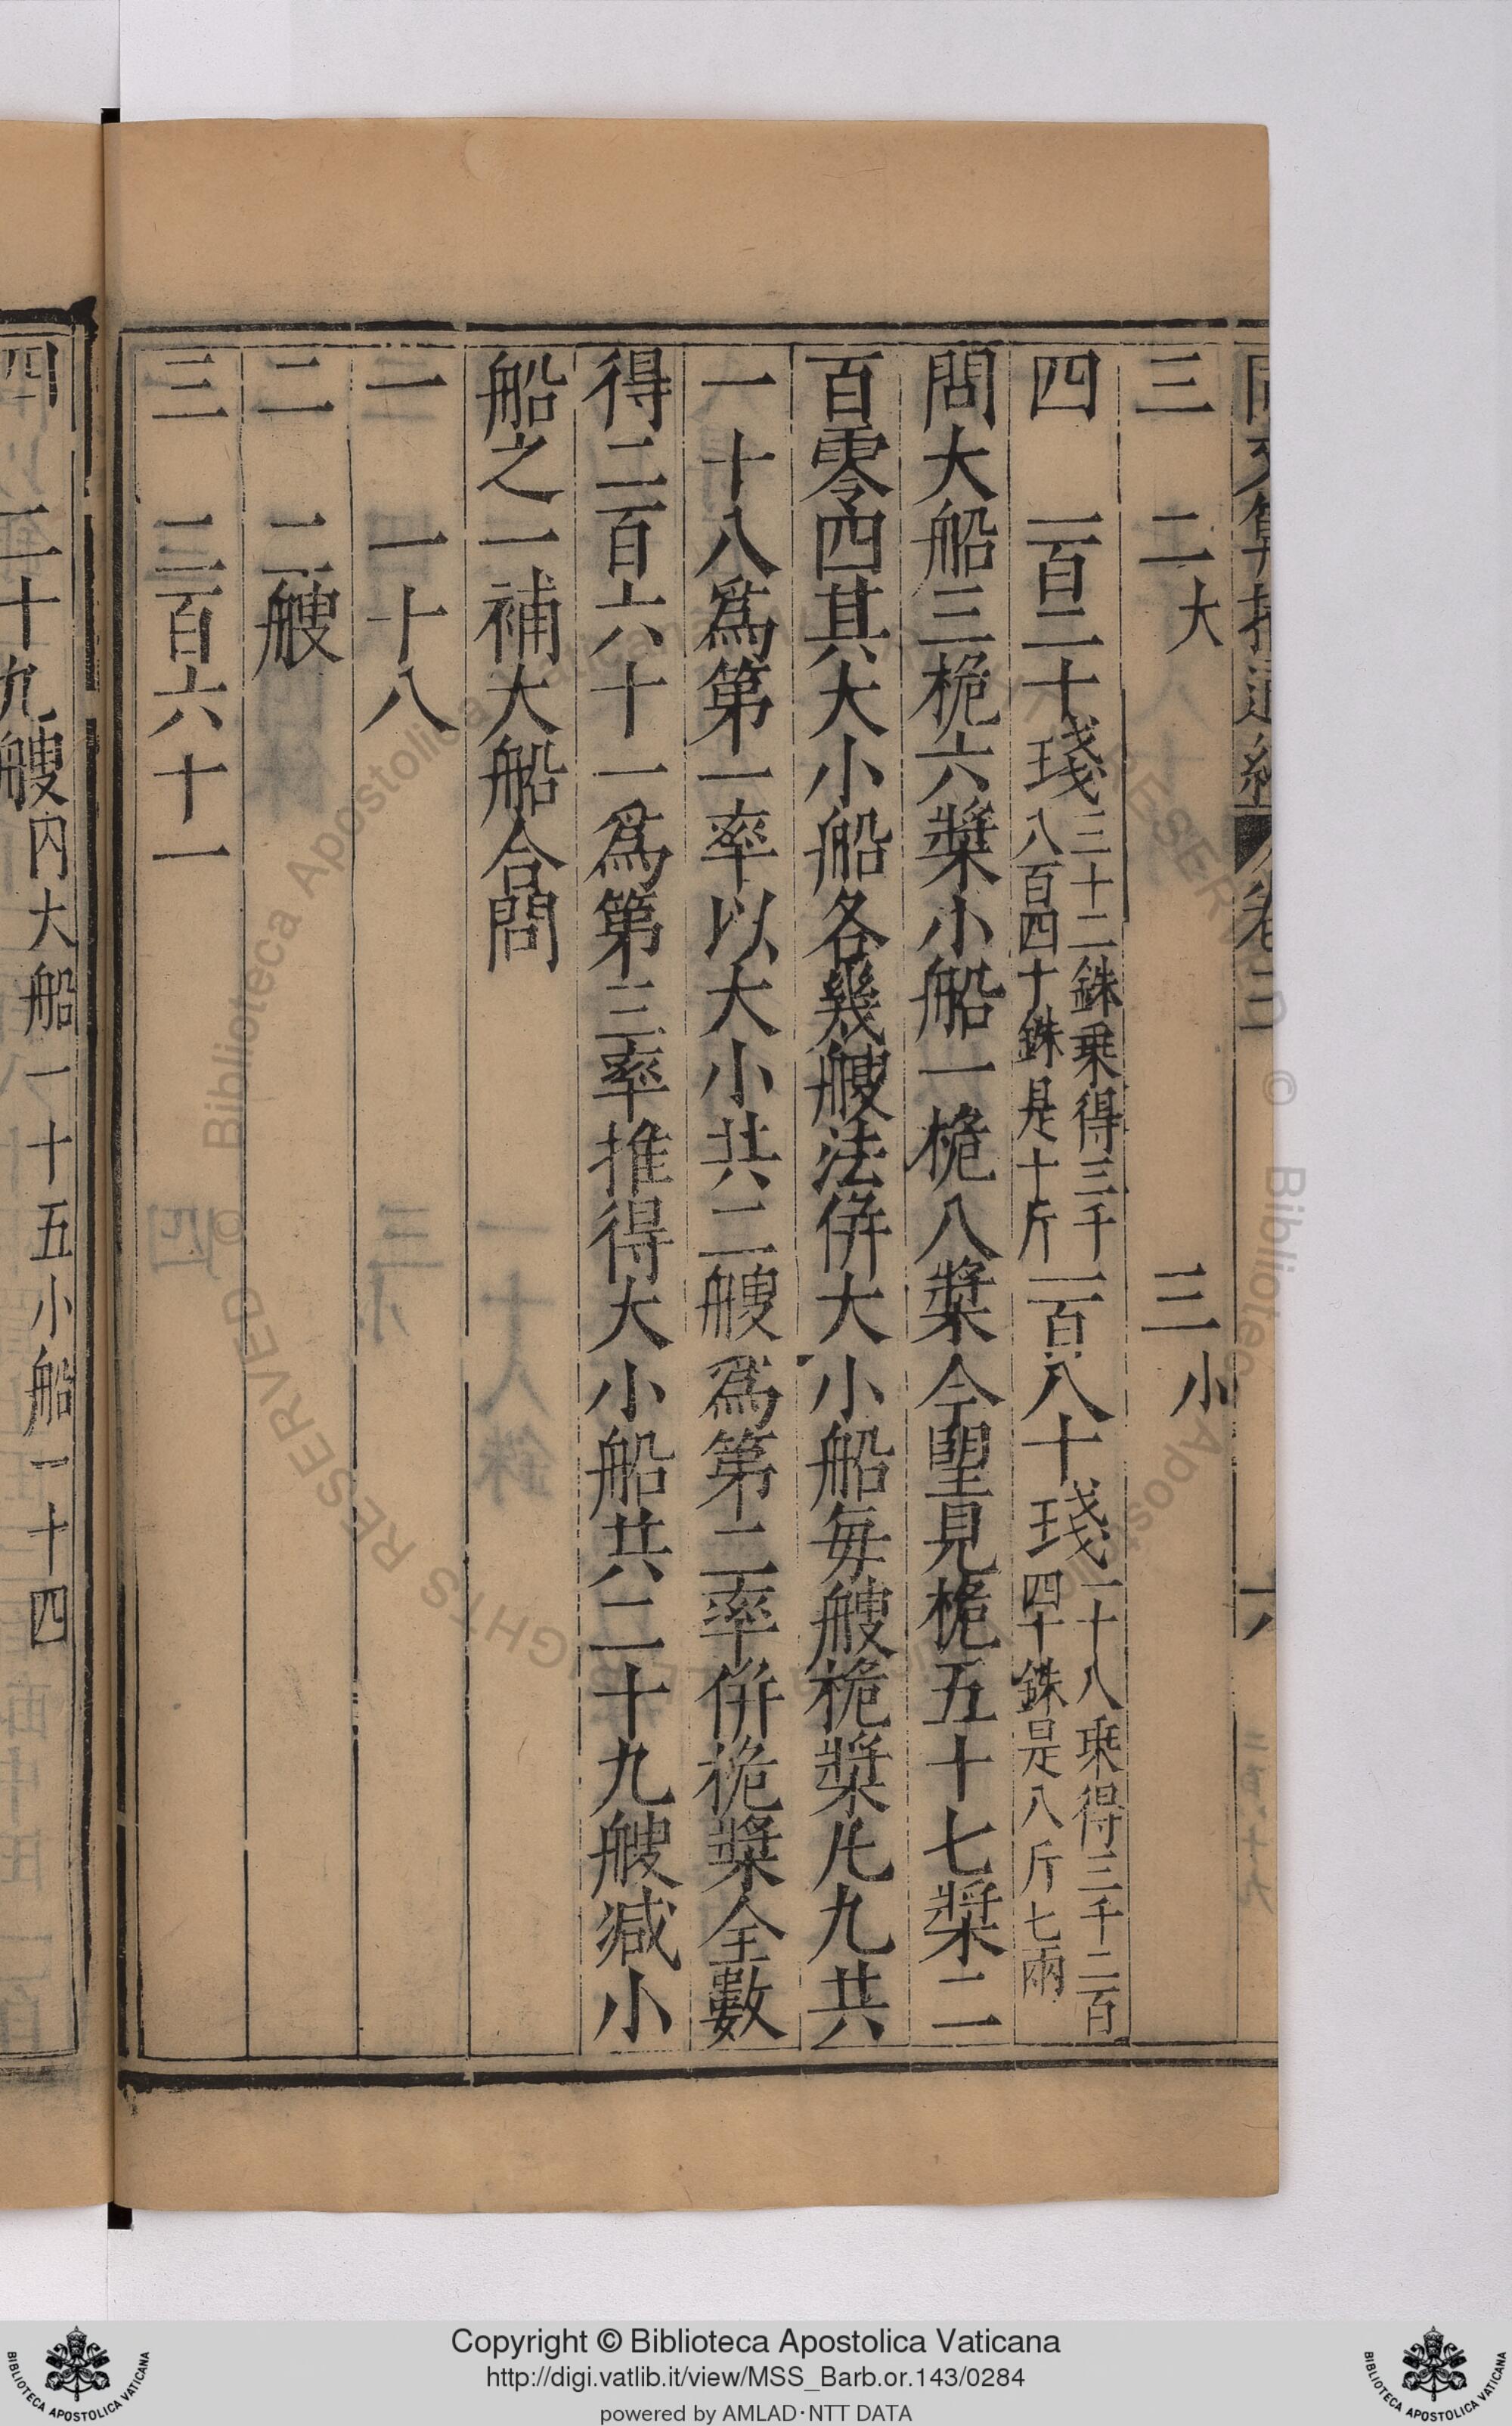 同文算指通編 卷二 六
三 二大 三小
四 一百二十琖 三十二銖乗得三千八百四十銖是十斤 一百八十琖 一十八乗得三千二百四十銖是八斤七兩
問大船三桅六槳小船一桅八槳今望見桅五十七槳二
百零四其大小船各幾艘法併大小船每艘桅槳凡九共
一十八爲第一率以大小共二艘爲第二率併桅槳全數
得二百六十一爲第三率推得大小船共二十九艘減小
船之一補大船合問
一 一十八
二 二艘
三 二百六十一
四 二十九艘內大船一十五小船一十四
Copyright © Biblioteca Apostolica Vaticana
http://digi.vatlib.it/view/MSS_Barb.or.143/0284
powered by AMLAD·NTT DATA
BIBLIOTECA APOSTOLICA VATICANA
BIBLIOTECA APOSTOLICA VATICANA